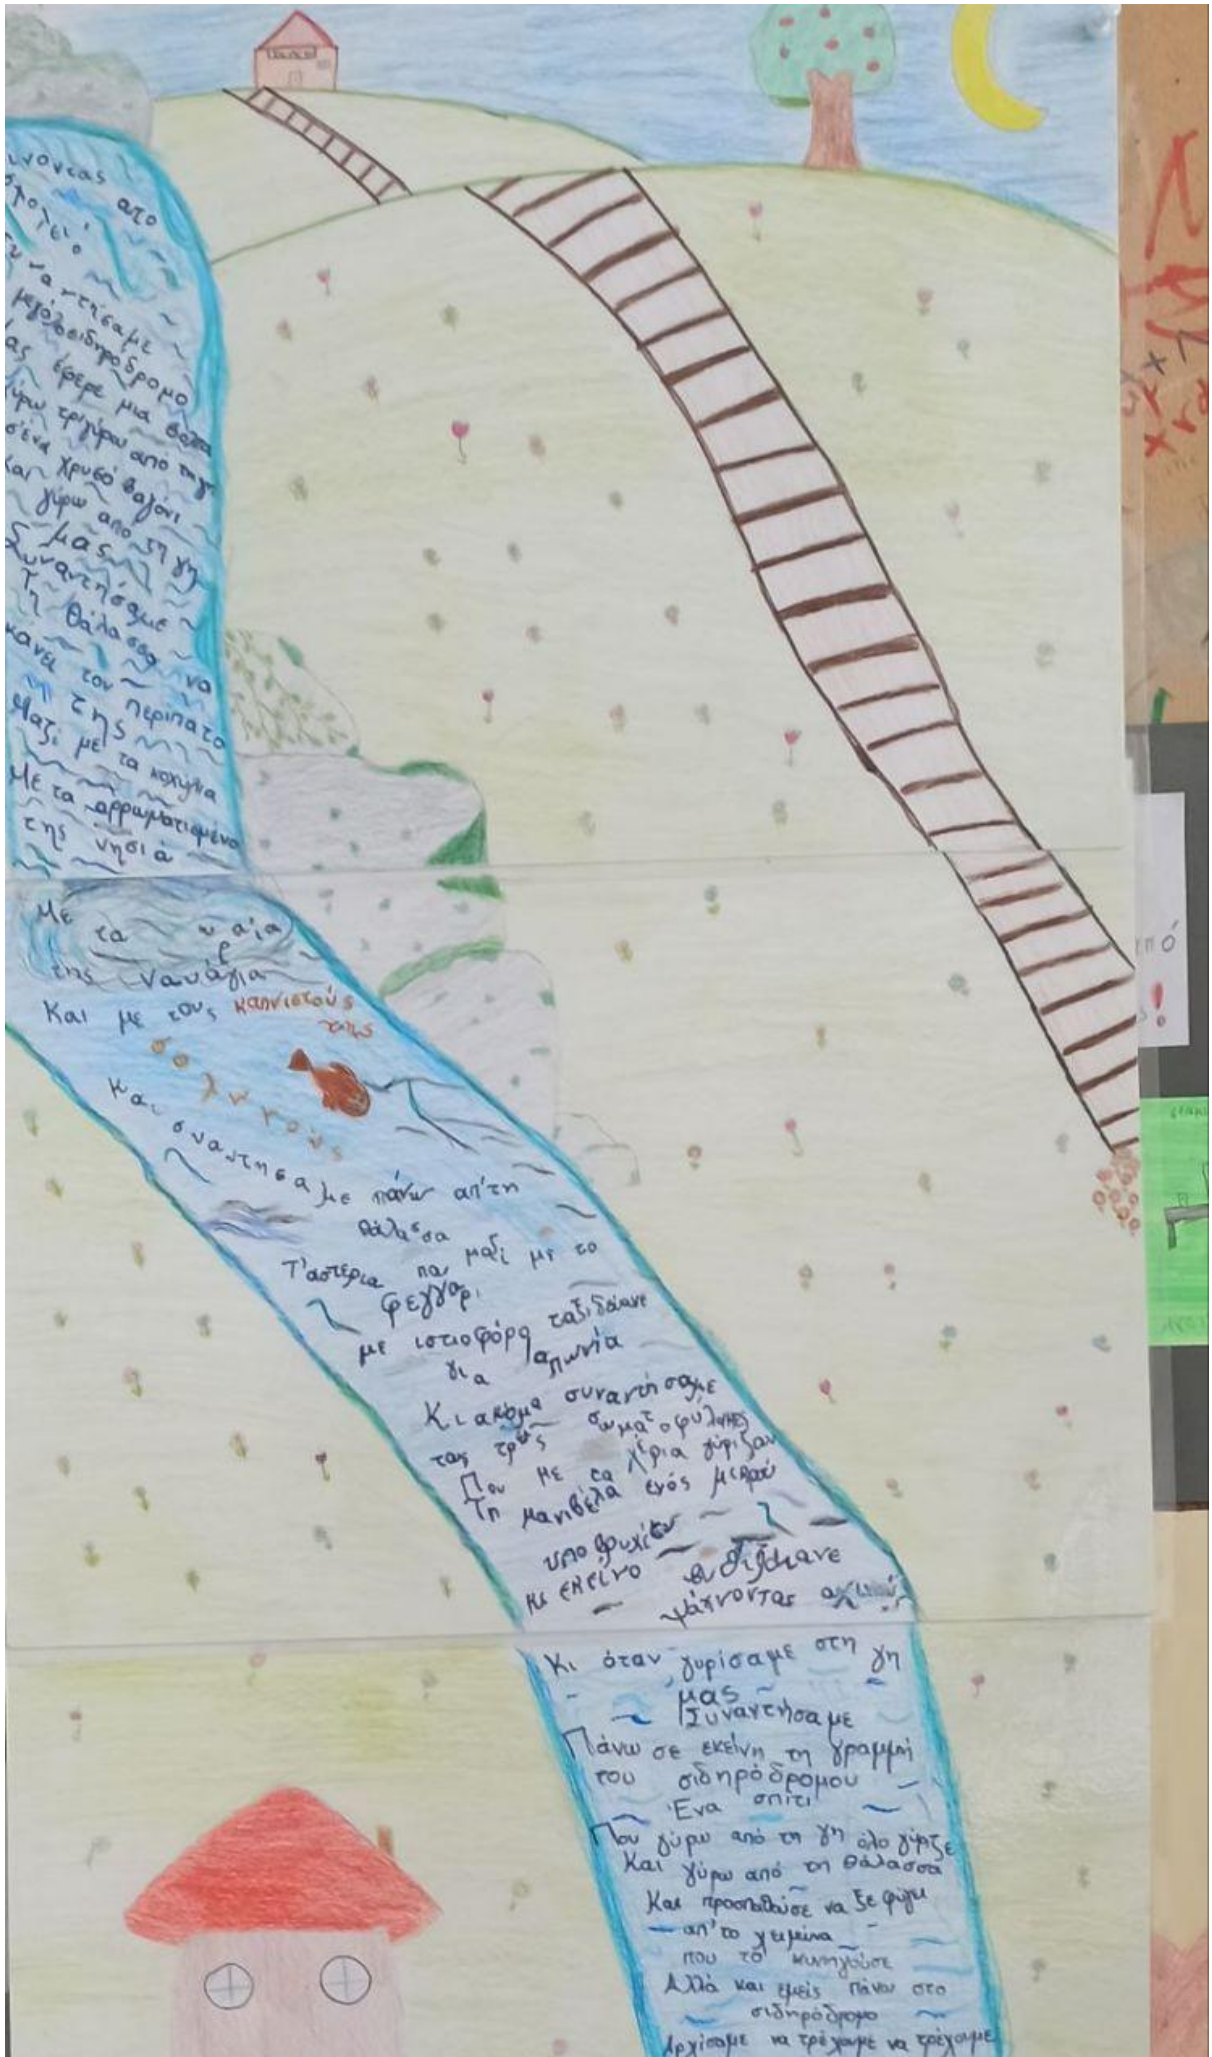 βγαίνοντας απο
το σχολειό
Συναντήσαμε
μεγάλο σιδηρόδρομο
μας έφερε μια βόλτα
γύρω τριγύρω από τη γη
σ'ένα χρυσό βαγόνι
και γύρω από τη γη
μας
Συναντήσαμε
Τη θάλασσα να
κάνει τον περίπατο
της
Μαζί με τα κοχύλια
Με τα αρρωματισμένα
της νησιά
Με τα ωραία
της ναυάγια
Και με τους καπνιστούς
της
σολωμούς
Και συναντησαμε πάνω απ'τη
θάλασσα
Τ'αστερια μαζί με το
φεγγάρι
με ιστιοφόρο ταξιδεύανε
για Ιαπωνία
Κι ακομα συναντήσαμε
τους τρεις σωματοφύλακες
Που με τα χέρια γύριζαν
Τη μανιβέλα ενός μικρού
υποβρυχίου
με εκείνο βυθιζόμανε
ψάχνοντας αχινούς
Κι όταν γυρίσαμε στη γη
μας
Συναντήσαμε
Πάνω σε εκείνη τη γραμμή
του σιδηρόδρομου
Ένα σπίτι
Που γύρω από τη γη όλο γύριζε
Και γύρω από τη θάλασσα
Και προσπαθούσε να ξεφύγει
απ'το χειμώνα
που το κυνηγούσε
Αλλά και εμείς πάνω στο
σιδηρόδρομο
Αρχίσαμε να τρέχουμε να τρέχουμε
πό
!